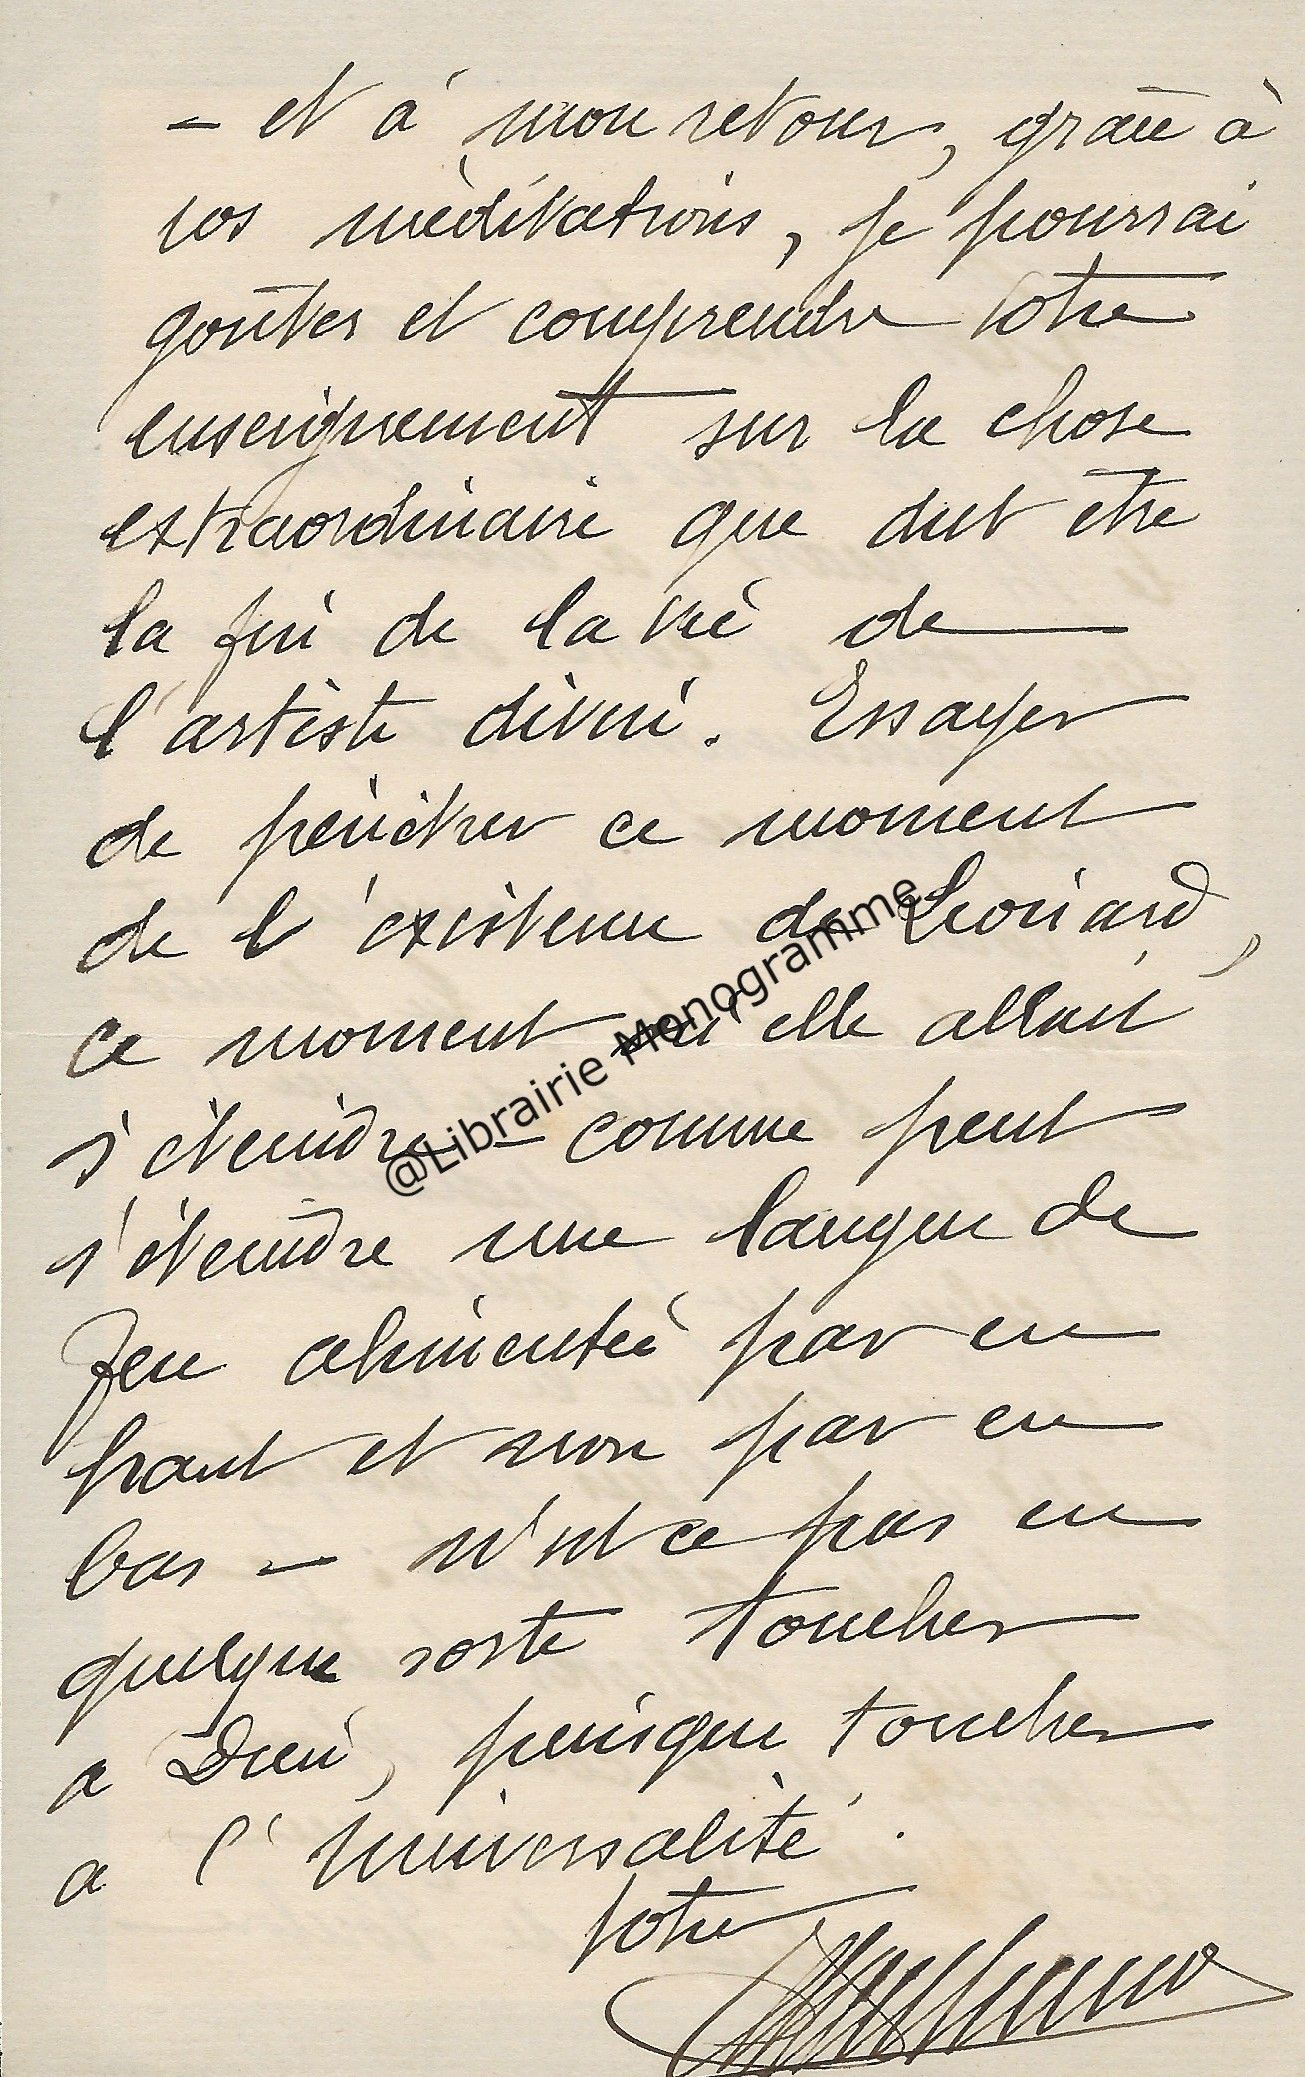 – et à mon retour, grâce à
vos méditations, je pourrai
goûter et comprendre votre
enseignement sur la chose
extraordinaire que dut être
la fin de la vie de
l'artiste divin. Essayer
de pénétrer ce moment
de l'existence de Léonard,
ce moment où elle allait
s'éteindre – comme peut
s'éteindre une langue de
feu alimentée par en
haut et non par en
bas – n'est ce pas en
quelque sorte toucher
a Dieu, puisque toucher
a l'universalité.
votre
@Librairie Monogramme